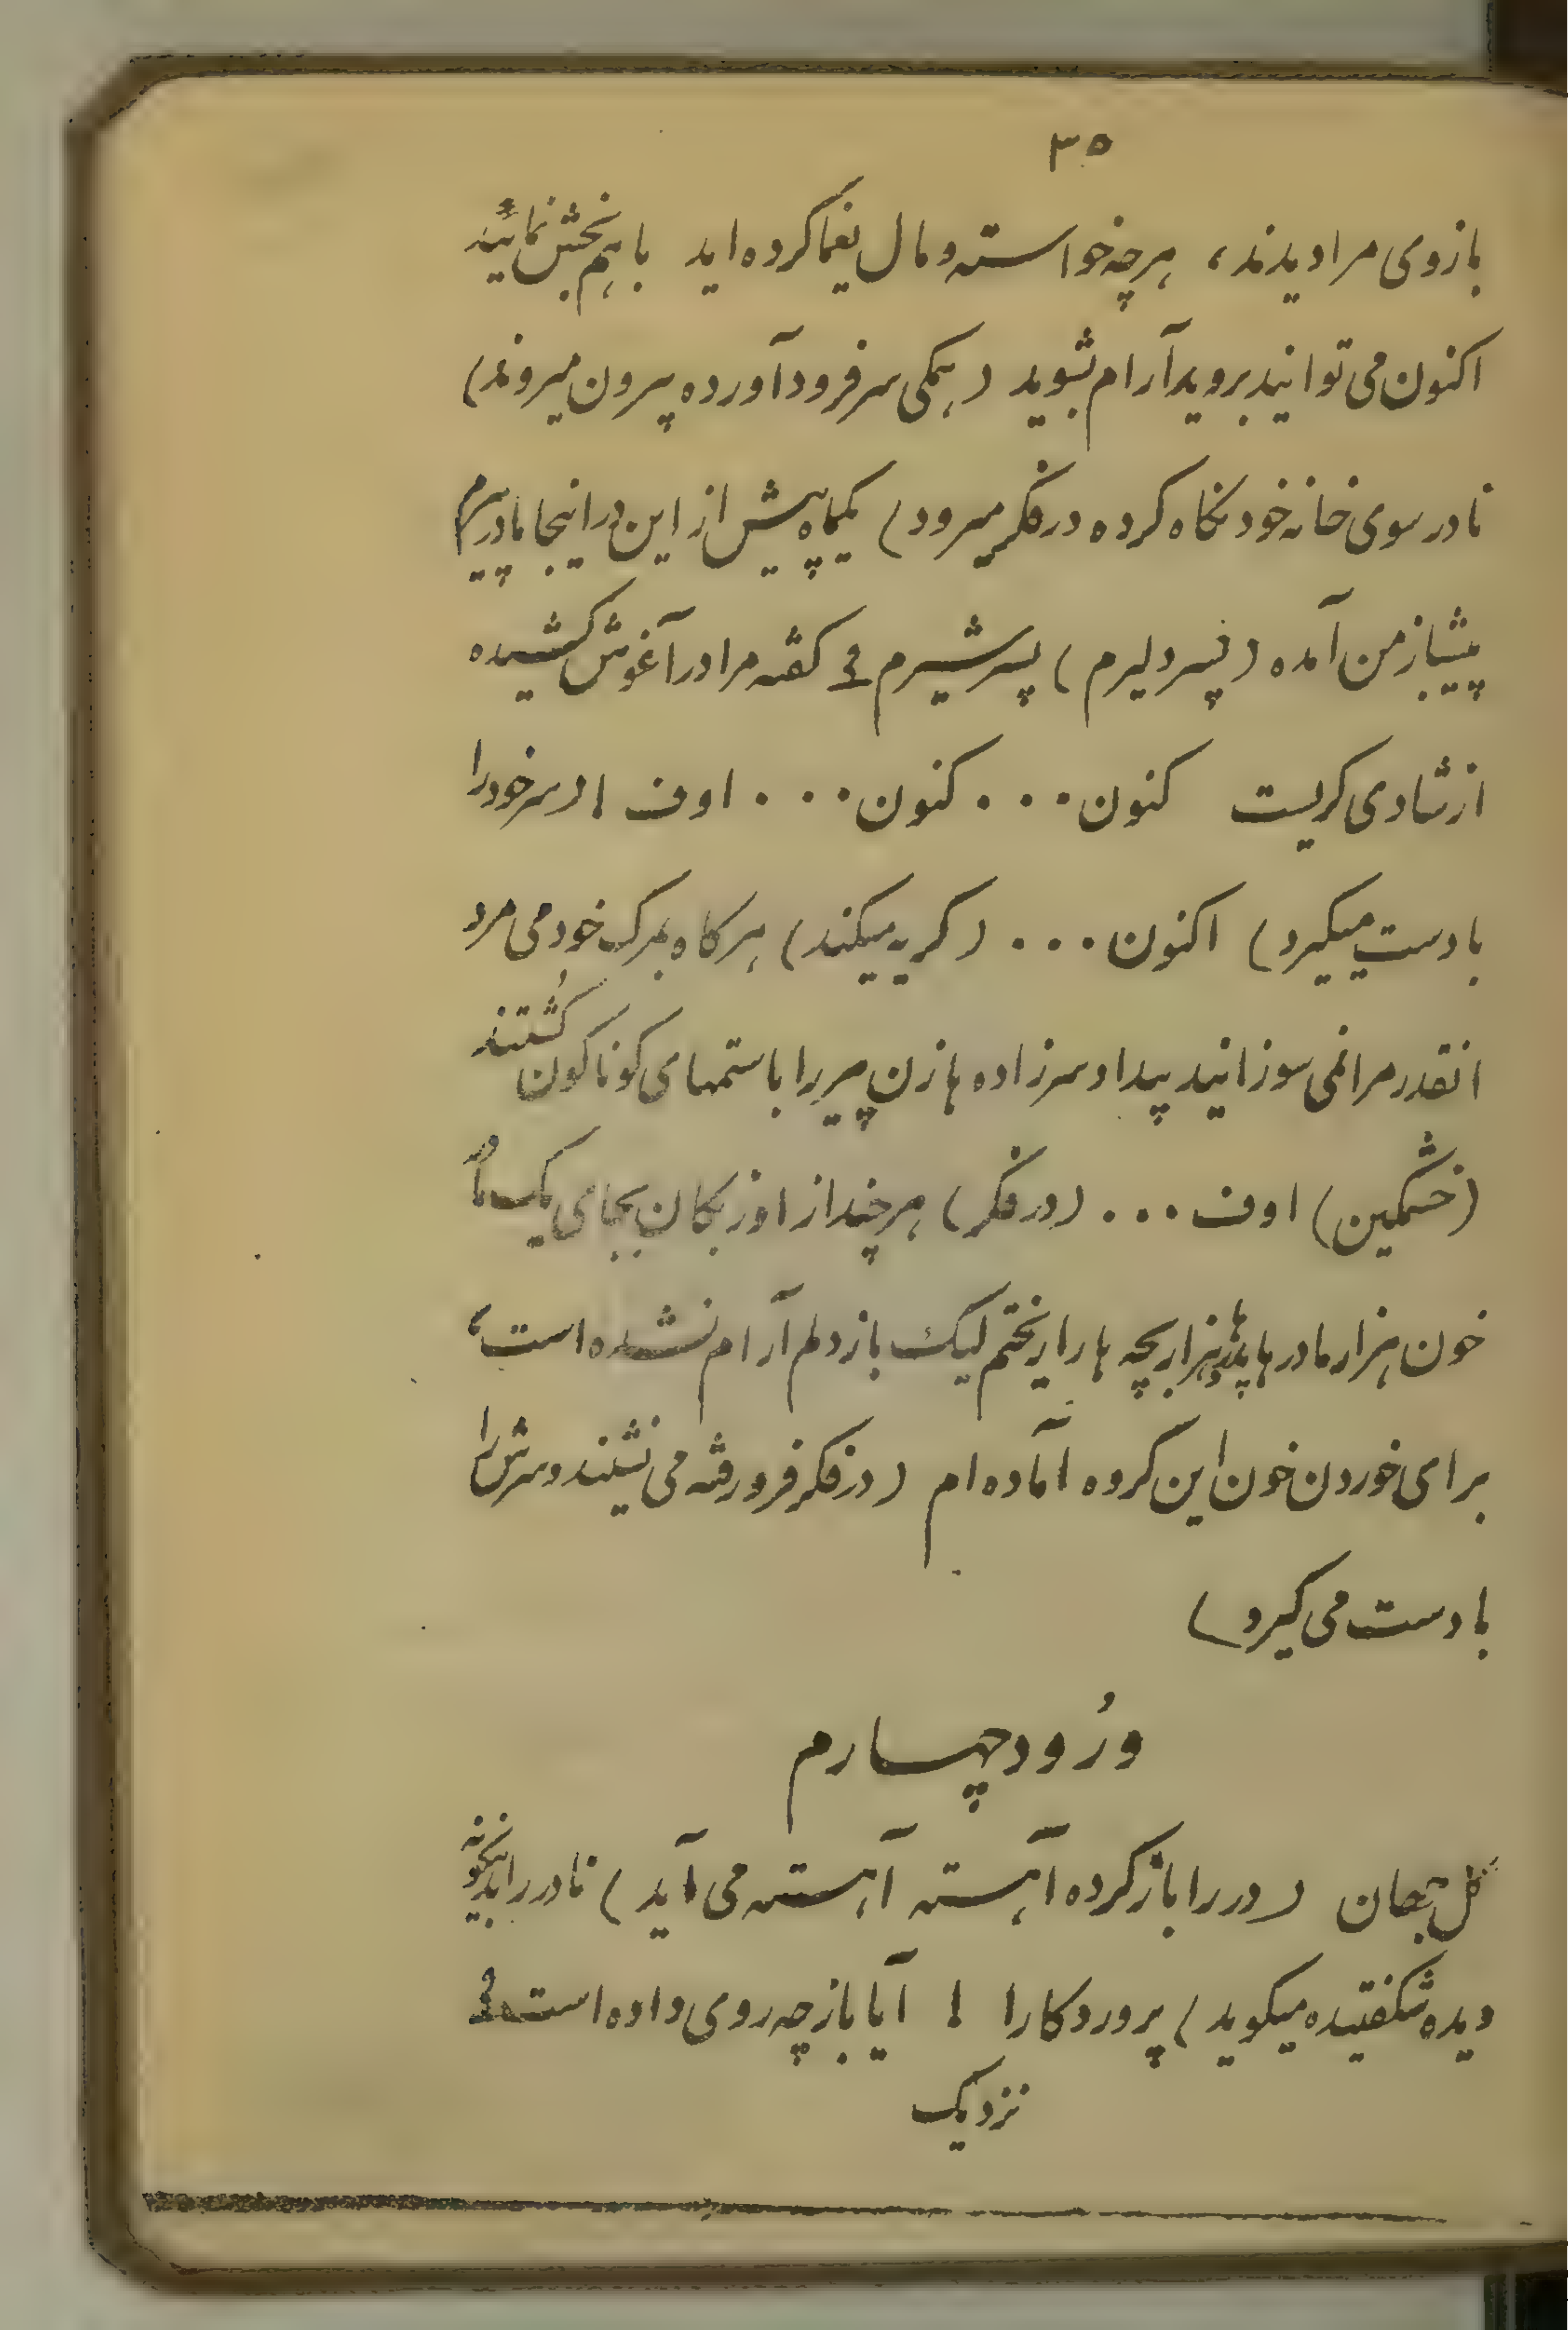 ۳۵
بازوی مرا دیدند، هرچه خواسته و مال یغما کرده اید با هم بخش نمائید
اکنون می توانید بروید آرام بشوید (همکی سر فرود آورده بیرون میروند)
نادر سوی خانه خود نکاه کرده در فکر میرود) یکماه پیش از این در اینجا مادر پیرم
پیشباز من آمده (پسر دلیرم) پسر شیرم ؟ کفته مرا در آغوش کشیده
از شادی کریست کنون... کنون... اوف ! (سر خود را
با دست میکیرد) اکنون... (کریه میکند) هرکاه بمرک خود می مرد
انقدر مرا نمی سوزانید بیدادسرزاده ها زن پیر را با ستمهای کوناکون کُشتند
(خشمکین) اوف... (در فکر) هرچند از اوزبکان بجای یک مادر
خون هزار مادرها پدرها هزار بچه ها را ریختم لیک باز دلم آرام نشده است،
برای خوردن خون این کروه آماده ام (در فکر فرو رفته می نشیند و سرش را
با دست می کیرد)
وُرُود چهارم
کل جهان (در را باز کرده آهسته آهسته می آید) نادر را بدینکونه
دیده شکفتیده میکوید) پروردکارا ! آیا باز چه روی داده است ؟
نزدیک